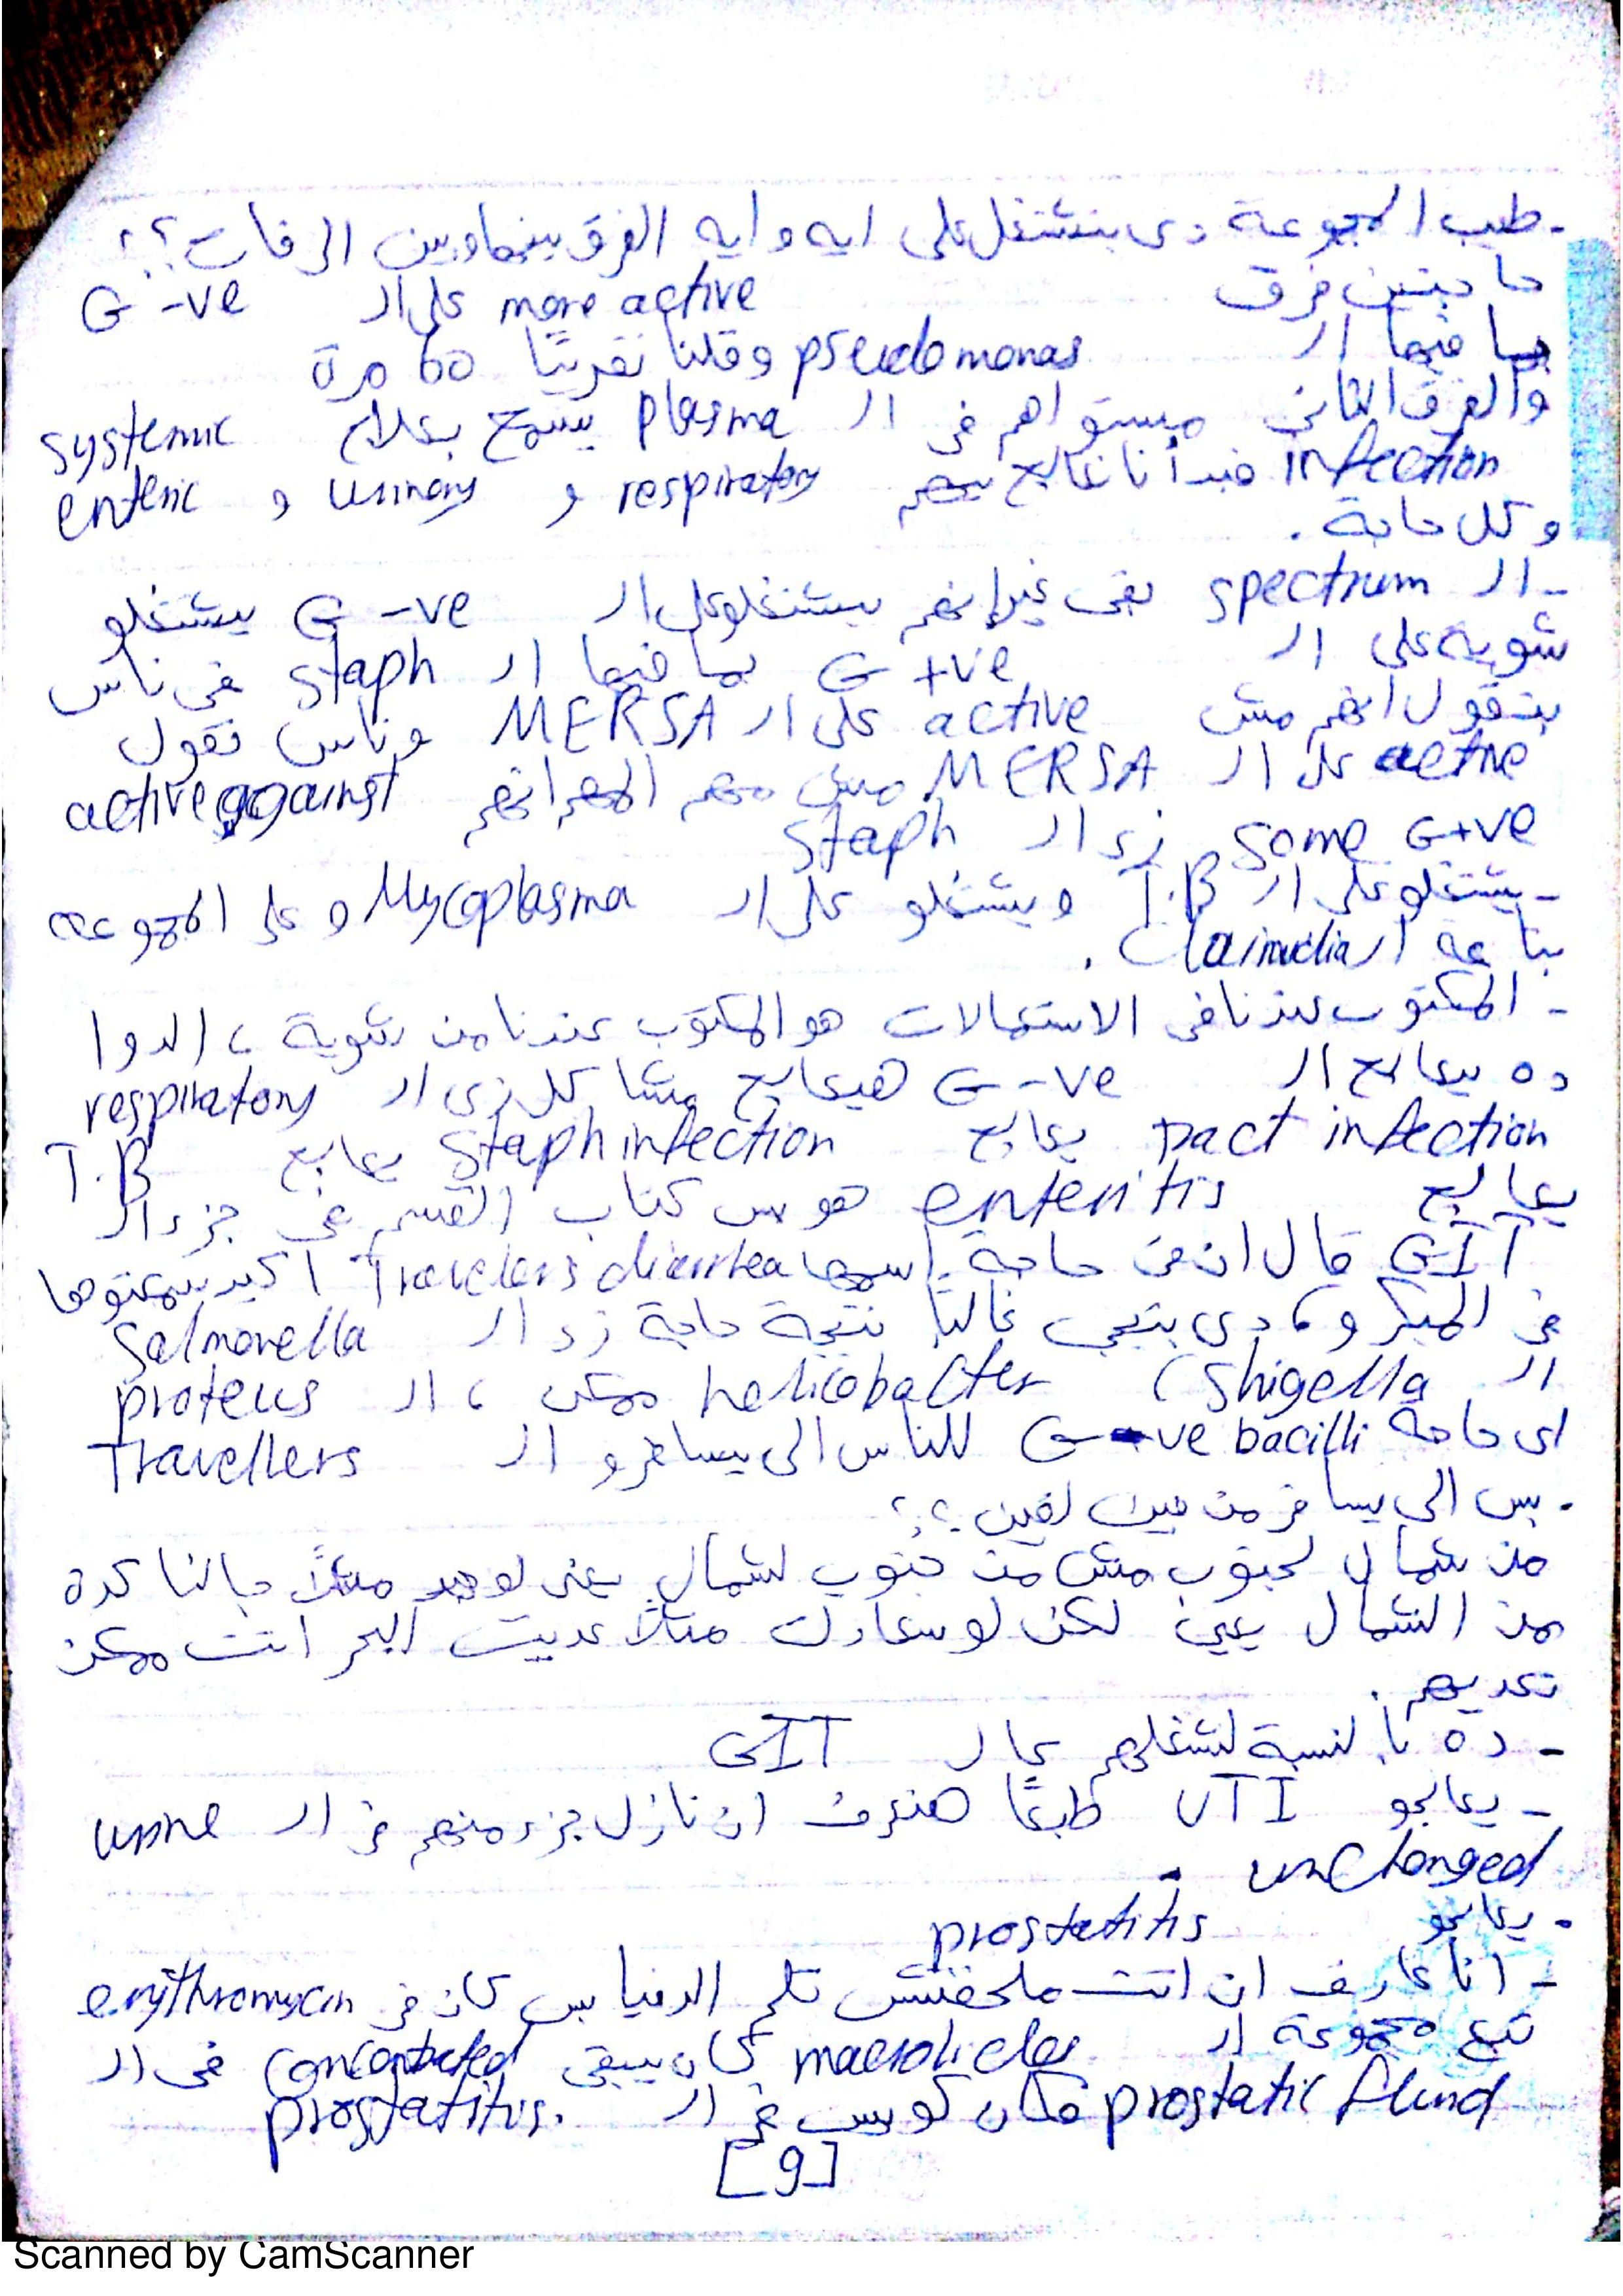 - طيب المجموعة دى بتشتغل على ايه وايه الفرق بينها وبين الى فات؟؟
حاجتين فرق more active على ال G -ve
بما فيها ال pseudomonas وقلنا تقريبًا 60 مرة
والفرق التانى مستواهم فى ال plasma يسمح بعلاج systemic
infection فبدأنا نعالج بيهم respiratory و urinary و enteric
وكل حاجة.
- ال spectrum بقى غير انهم بيشتغلو على ال G -ve يشتغلو
شوية على ال G +ve بما فيها ال staph فى ناس
بتقول انهم مش active على ال MERSA وناس تقول
active على ال MERSA مش مهم المهم انهم active against
some G+ve زى ال staph
- يشتغلو على ال T.B ويشتغلو على ال Mycoplasma وعلى المجموعة
بتاعة ال Claimudia.
- المكتوب عندنا فى الاستعمالات هو المكتوب عندنا من شوية، الدوا
ده بيعالج ال G -ve هيعالج مشاكل زى ال respiratory
tract infection يعالج staph infection يعالج T.B
يعالج enteritis هو بس كتاب القسم فى جزء ال
GIT قال ان فى حاجة اسمها Travelers diarrhea اكيد سمعتوها
فى الميكرو، دى بتيجى غالبًا نتيجة حاجة زى ال Salmonella
ال Shigella، helicobacter ممكن، ال proteus
اى حاجة G -ve bacilli للناس الى بيسافرو ال Travellers
- بس الى يسافر من فين لفين؟؟
من شمال لجنوب مش من جنوب لشمال يعنى لو حد مثلاً جالنا كدة
من الشمال يعيى لكن لو سعادتك مثلاً عديت البحر انت ممكن
تعديهم.
- ده بالنسبة لشغلهم عال GIT
- يعالجو UTI طبعًا هنعرف ان نازل جزء منهم فى ال urine
unchanged.
- يعالجو prostatitis
- انا عارف ان انت ملحقتش تلم الدنيا بس كان فى erythromycin
تبع مجموعة ال macrolides كان بيبقى concentrated فى ال
prostatic fluid فكان كويس فى ال prostatitis.
[9]
Scanned by CamScanner